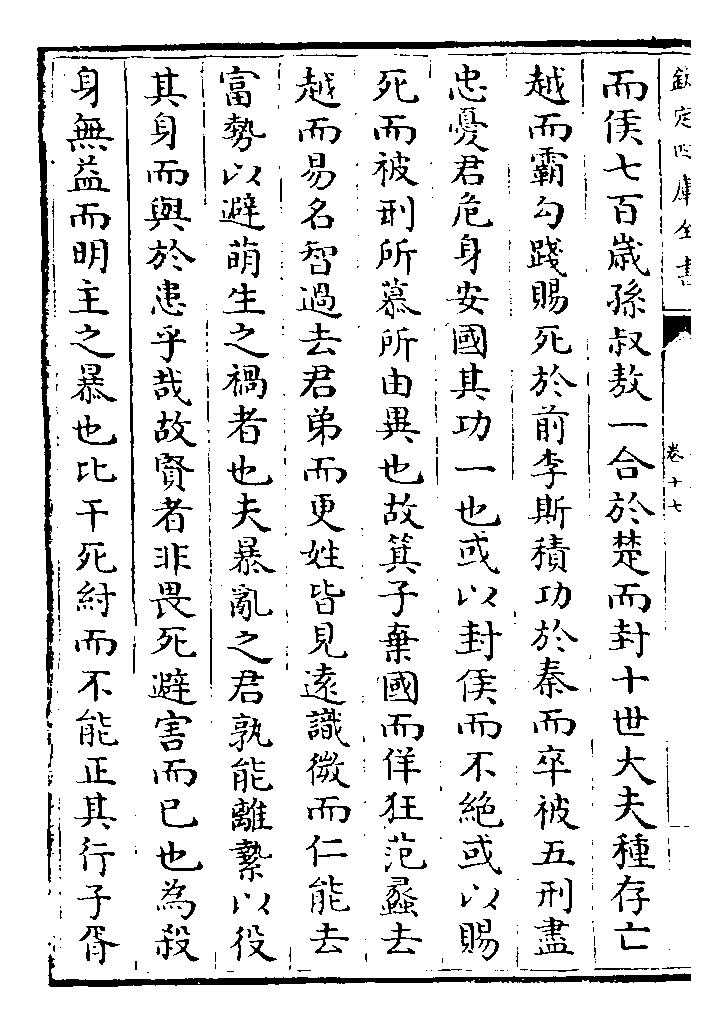 欽定四庫全書
卷十七
而侯七百歲孫叔敖一合於楚而封十世大夫種存亡
越而霸勾踐賜死於前李斯積功於秦而卒被五刑盡
忠憂君危身安國其功一也或以封侯而不絶或以賜
死而被刑所慕所由異也故箕子棄國而佯狂范蠡去
越而易名智過去君弟而更姓皆見逺識微而仁能去
富勢以避萌生之禍者也夫暴亂之君孰能離縶以役
其身而與於患乎哉故賢者非畏死避害而已也為殺
身無益而明主之暴也比干死紂而不能正其行子胥